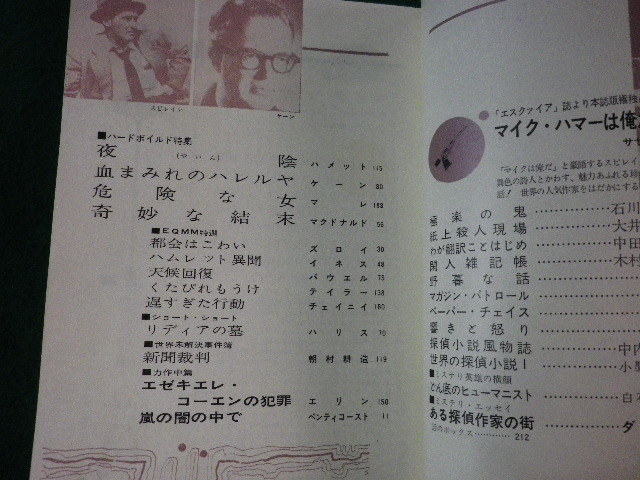 スピレイン
ケーン
■ハードボイルド特集
夜陰 (やいん) ハメット 145
血まみれのハレルヤ ケーン 80
危険な女 マレ 188
奇妙な結末 マクドナルド 56
■EQMM特選
都会はこわい ズロイ 30
ハムレット異聞 イネス 48
天候回復 パウエル 75
くたびれもうけ テイラー 138
遅すぎた行動 チェイニイ 180
■ショート・ショート
リディアの墓 ハリス 70
■世界未解決事件簿
新聞裁判 朝村耕造 119
■力作中篇
エゼキエレ・
コーエンの犯罪 エリン 150
嵐の闇の中で ペンティコースト 11
「エスクァイア」誌より本誌版権独
マイク・ハマーは俺
サセ
「マイクは俺だ」と豪語するスピレイ
異色の詩人とかわす、魅力あふれる
話! 世界の人気作家をはだかにする
極楽の鬼 石川
紙上殺人現場 大井
わが翻訳ことはじめ 中田
閑人雑記帳 木村
野暮な話
マガジン・パトロール
ペーパー・チェイス
響きと怒り
探偵小説風物誌 中内
世界の探偵小説 I 小
■ミステリ英雄の横顔
どん底のヒューマニスト 白
■ミステリ・エッセイ
ある探偵作家の街 ダ
212